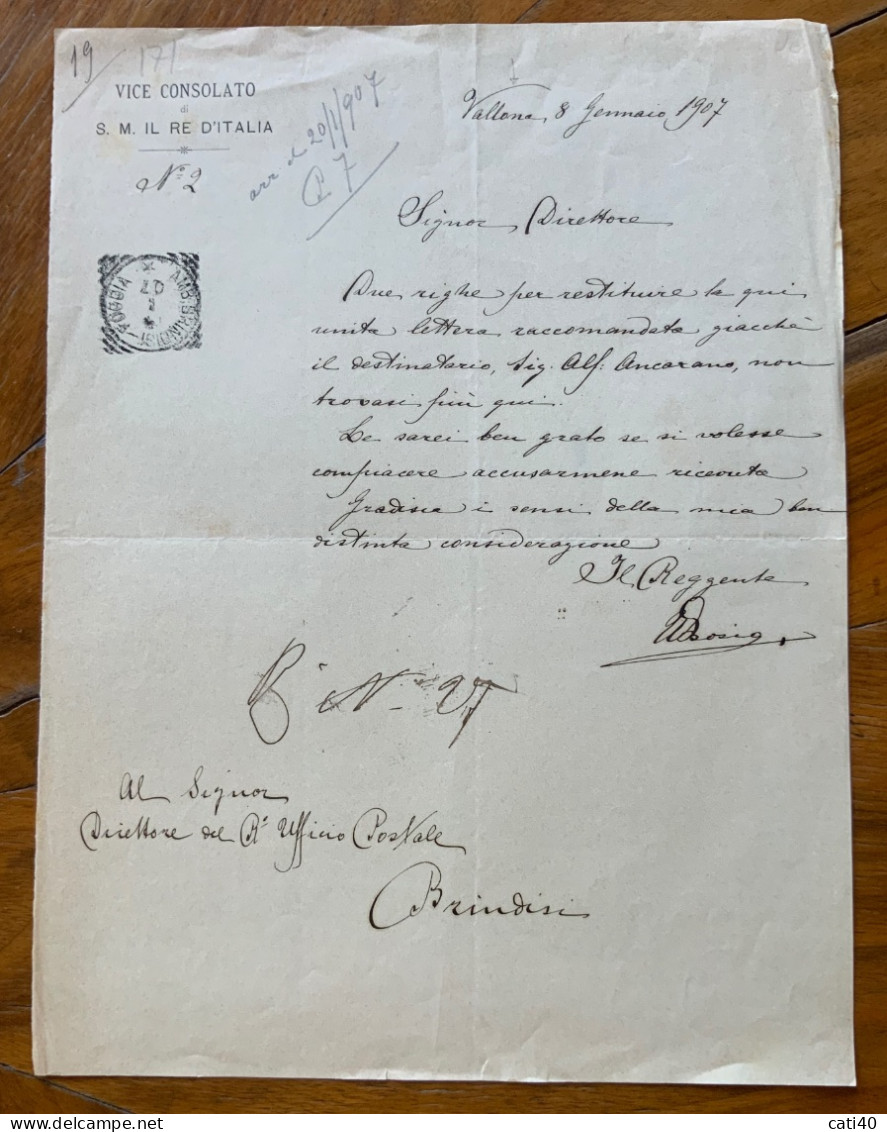 19
171
VICE CONSOLATO
di
S. M. IL RE D'ITALIA
N.° 2
arr d 20/1/907
P. 7
Vallona, 8 Gennaio 1907
Signor Direttore
Due righe per restituire la qui
unita lettera raccomandata giacchè
il destinatario, Sig. Alf. Ancarano, non
trovasi più qui.
Le sarei ben grato se si volesse
compiacere accusarmene ricevuta
Gradisca i sensi della mia ben
distinta considerazione
Il Reggente
AMB. BRINDISI - FOGGIA
07
N. 27
Al Signor
Direttore del R° Ufficio Postale
Brindisi
cati40